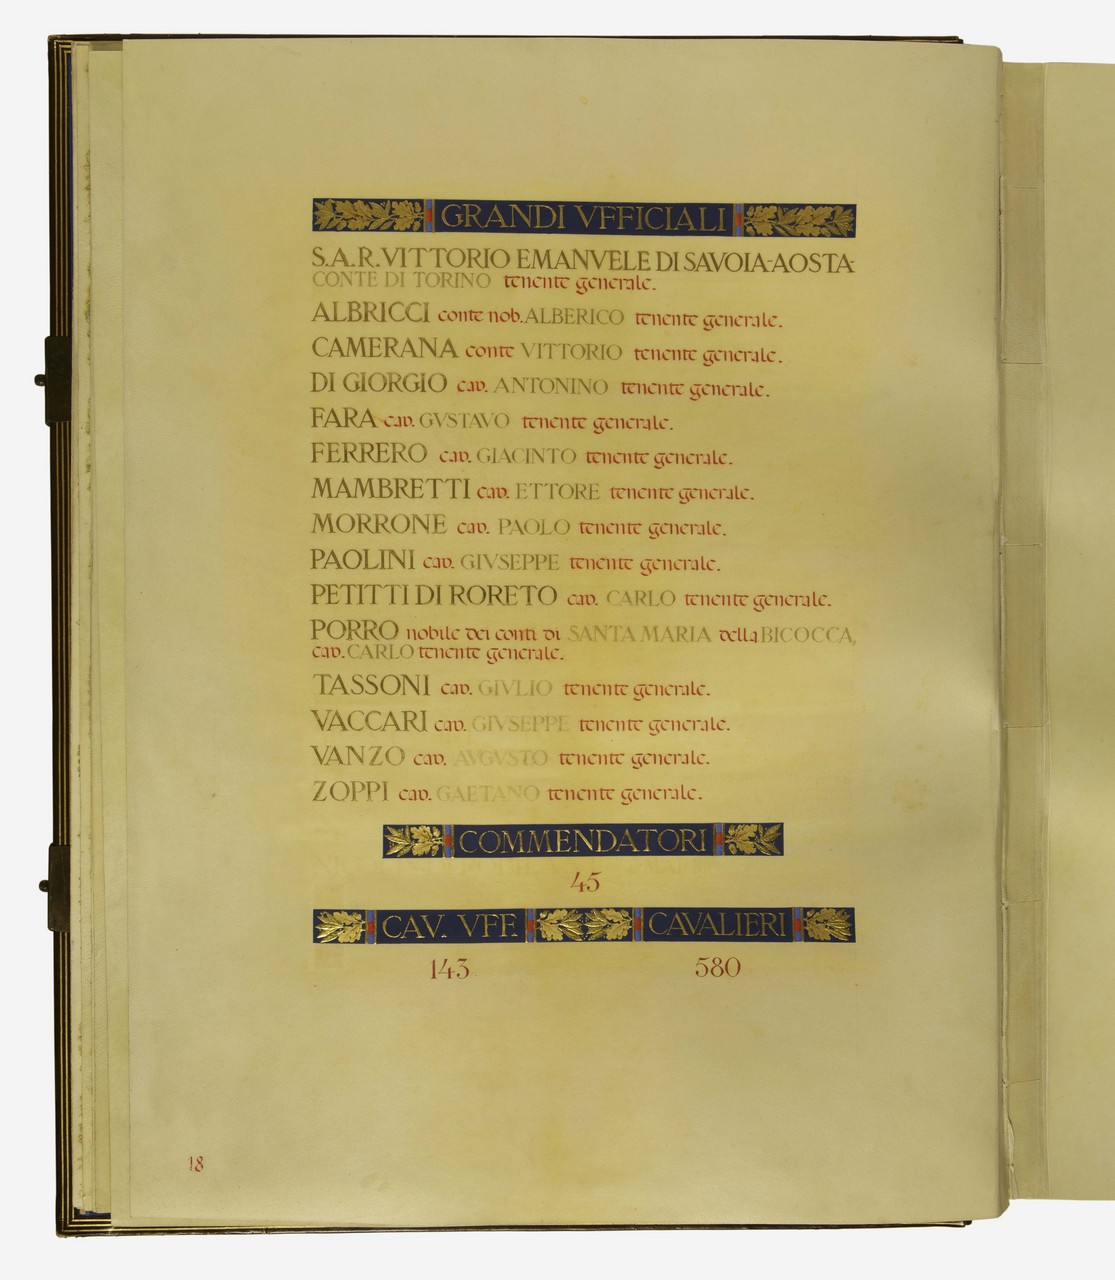 GRANDI VFFICIALI
S.A.R. VITTORIO EMANVELE DI SAVOIA-AOSTA-
CONTE DI TORINO tenente generale.
ALBRICCI conte nob. ALBERICO tenente generale.
CAMERANA conte VITTORIO tenente generale.
DI GIORGIO cav. ANTONINO tenente generale.
FARA cav. GVSTAVO tenente generale.
FERRERO cav. GIACINTO tenente generale.
MAMBRETTI cav. ETTORE tenente generale.
MORRONE cav. PAOLO tenente generale.
PAOLINI cav. GIVSEPPE tenente generale.
PETITTI DI RORETO cav. CARLO tenente generale.
PORRO nobile dei conti di SANTA MARIA della BICOCCA,
cav. CARLO tenente generale.
TASSONI cav. GIVLIO tenente generale.
VACCARI cav. GIVSEPPE tenente generale.
VANZO cav. AVGVSTO tenente generale.
ZOPPI cav. GAETANO tenente generale.
COMMENDATORI
45
CAV. VFF. CAVALIERI
143 580
18